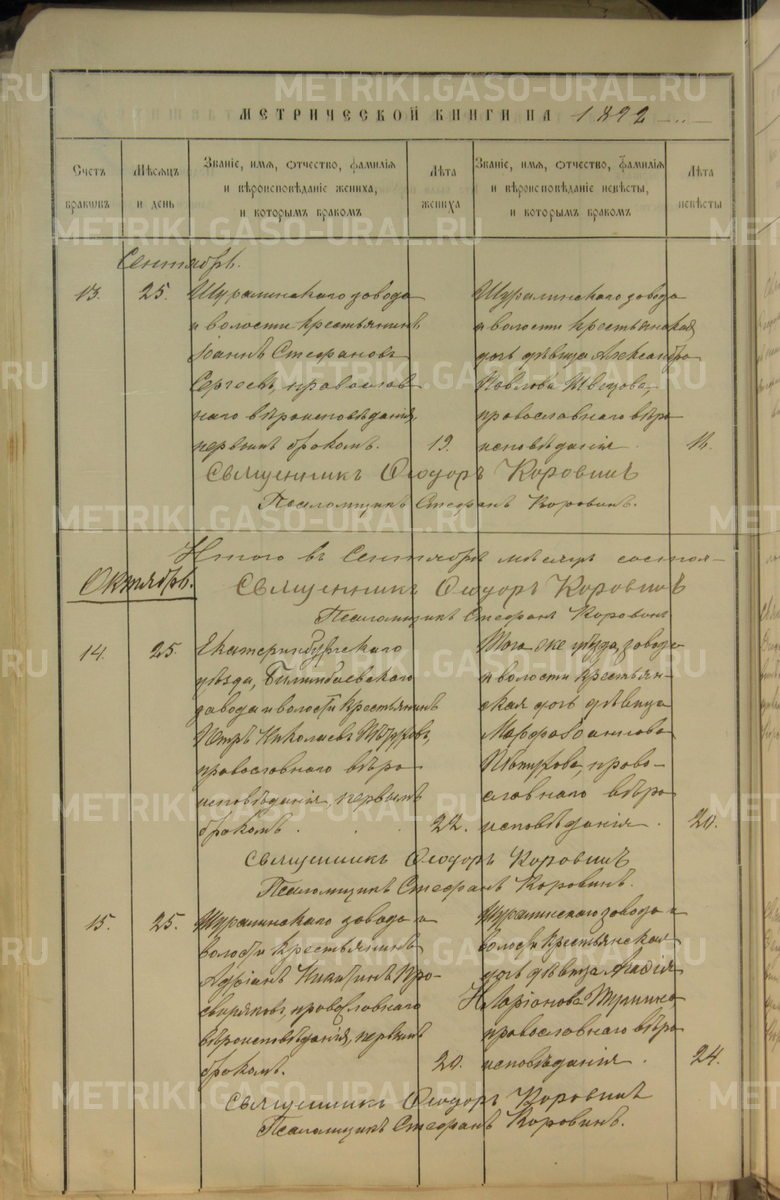 METRIKI.GASO-URAL.RU
МЕТРИЧЕСКОЙ КНИГИ НА 1892
Счетъ браковъ
Мѣсяцъ и день
Званіе, имя, отчество, фамилія и вѣроисповѣданіе жениха, и которымъ бракомъ
Лѣта жениха
Званіе, имя, отчество, фамилія и вѣроисповѣданіе невѣсты, и которымъ бракомъ
Лѣта невѣсты
Сентябрь.
13.
25.
Шуралинскаго завода
и волости крестьянинъ
Іоаннъ Стефановъ
Сергеевъ, православ
наго вѣроисповѣданія,
первымъ бракомъ.
19.
Шуралинскаго завода
и волости крестьянская
дочь дѣвица Александра
Павлова Швецова,
православнаго вѣро
исповѣданія
Священникъ Ѳеодоръ Коровинъ
Псаломщикъ Стефанъ Коровинъ.
Итого въ Сентябрѣ мѣсяцѣ состоя-
Октябрь.
Священникъ Ѳеодоръ Коровинъ
Псаломщикъ Стефанъ Коровинъ
14.
25.
Екатеринбургскаго
уѣзда, Билимбаевскаго
завода и волости крестьянинъ
Петръ Николаевъ
православнаго вѣро
исповѣданія, первымъ
бракомъ.
22.
Того же уѣзда, завода
и волости крестьян-
ская дочь дѣвица
Марфа Іоаннова
право-
славнаго вѣро
исповѣданія.
20.
Священникъ Ѳеодоръ Коровинъ
Псаломщикъ Стефанъ Коровинъ.
15.
25.
Шуралинскаго завода и
волости крестьянинъ
Адріанъ Никитинъ Про-
свиряковъ, православнаго
вѣроисповѣданія, первымъ
бракомъ.
20.
Шуралинскаго завода и
волости крестьянская
дочь дѣвица
Иларіонова
православнаго вѣро
исповѣданія.
24.
Священникъ Ѳеодоръ Коровинъ
Псаломщикъ Стефанъ Коровинъ.